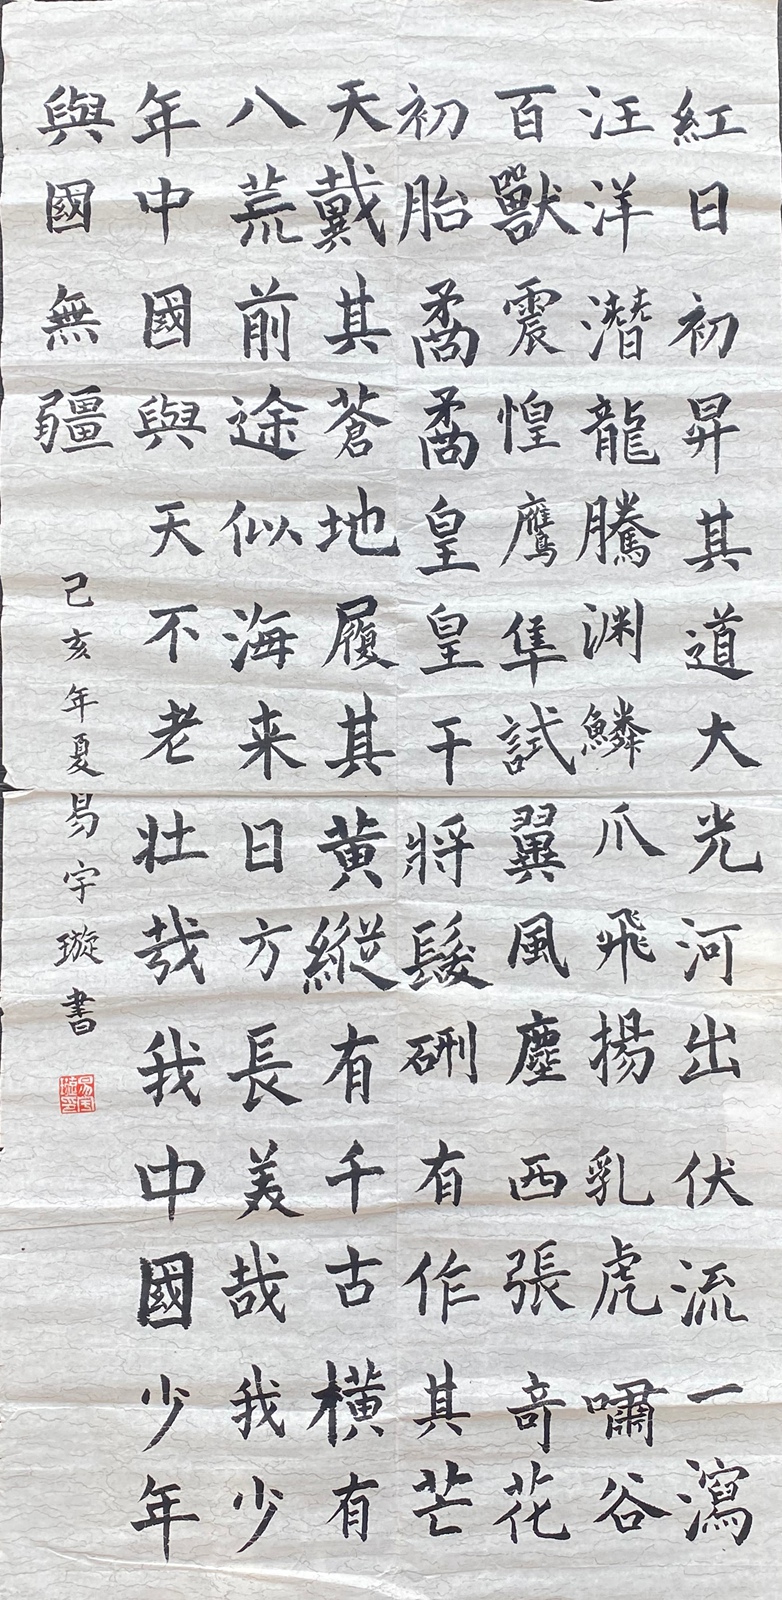 紅日初昇其道大光河出伏流一瀉
汪洋潛龍騰渊鱗爪飛揚乳虎嘯谷
百獸震惶鷹隼試翼風塵西張竒花
初胎矞矞皇皇干將髮硎有作其芒
天戴其蒼地履其黄縱有千古横有
八荒前途似海来日方長美哉我少
年中國與天不老壯哉我中國少年
與國無疆
己亥年夏易宇璇書